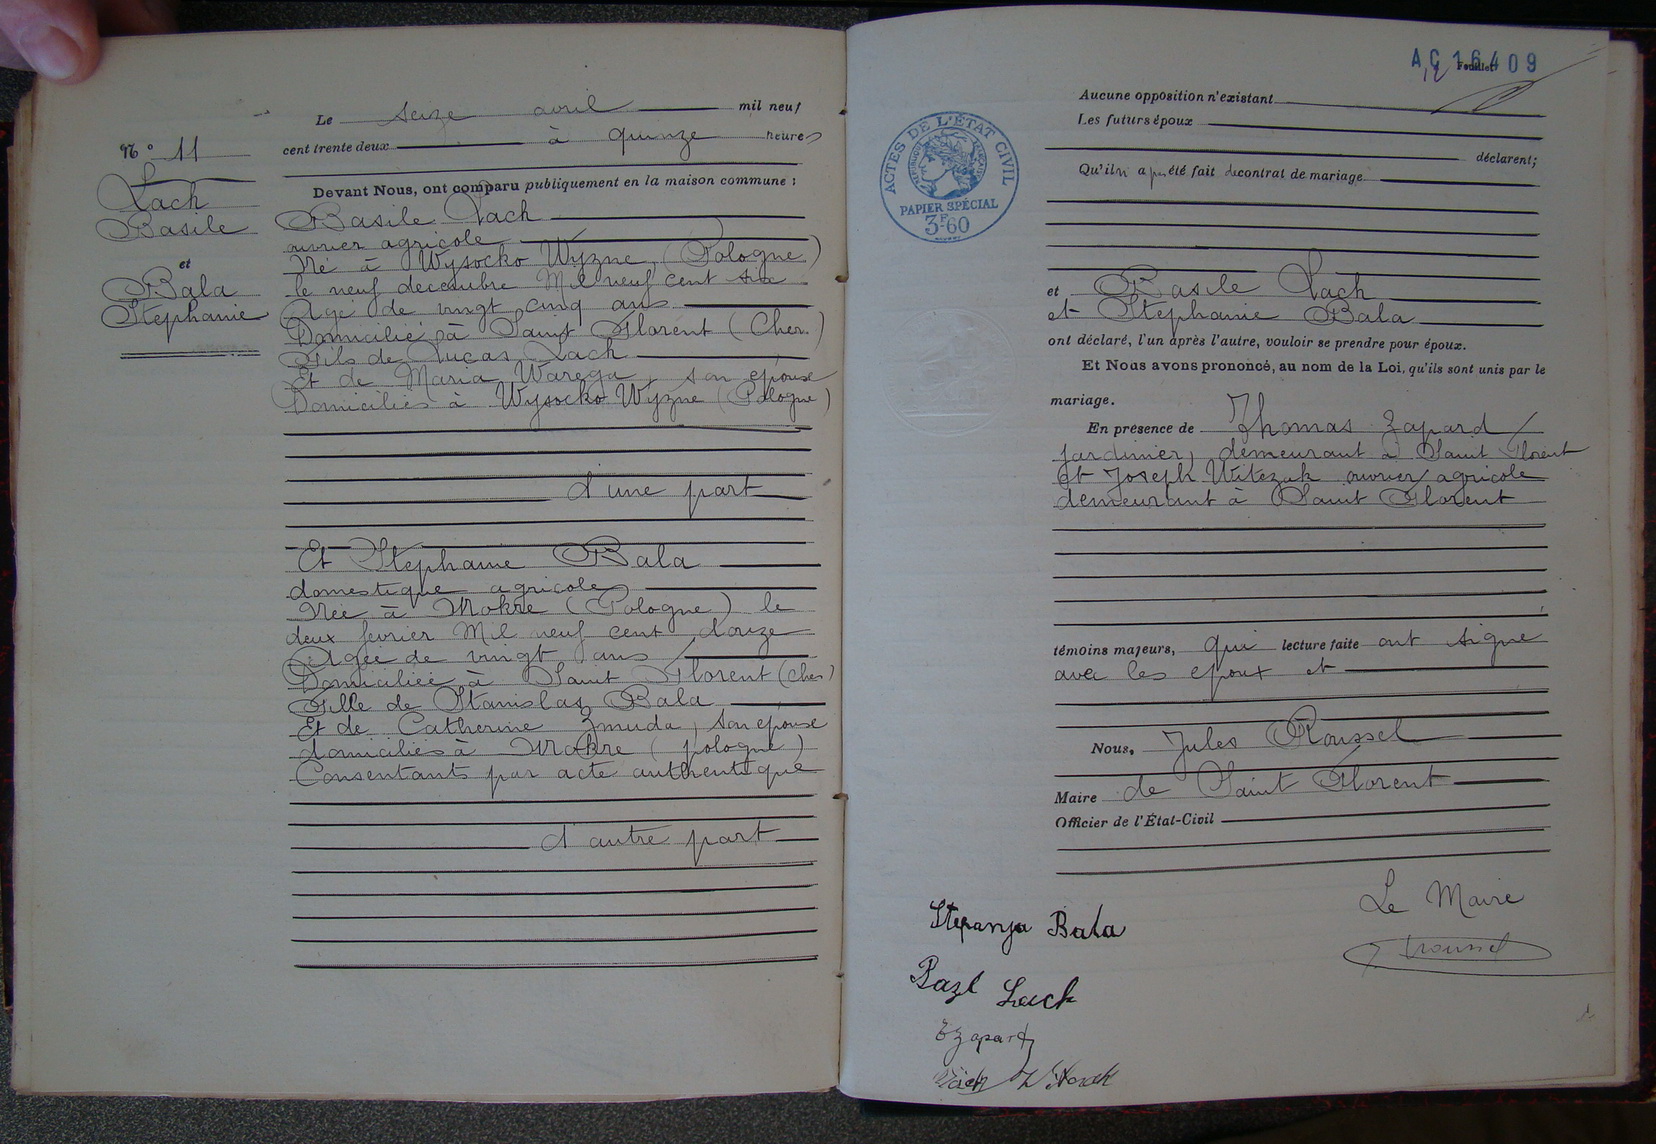 Le seize avril mil neuf
cent trente deux à quinze heures
Devant Nous, ont comparu publiquement en la maison commune :
N° 11
Lach
Basile
et
Bala
Stephanie
Basile Lach
ouvrier agricole
Né à Wysocko Wyzne (Pologne)
le neuf decembre Mil neuf cent six
Age de vingt cinq ans
Domicilié à Saint Florent (Cher)
Fils de Lucas Lach
Et de Maria Warega, son epouse
Domiciliés à Wysocko Wyzne (Pologne)
d'une part
Et Stephanie Bala
domestique agricole
Née à Mokre (Pologne) le
deux fevrier Mil neuf cent douze
Agée de vingt ans
Domiciliée à Saint Florent (Cher)
Fille de Stanislas Bala
Et de Catherine Zmuda, son epouse
domiciliés à Mokre (pologne)
Consentants par acte authentique
d'autre part
AC 16409
12 Feuillet
ACTES DE L'ÉTAT CIVIL
PAPIER SPÉCIAL
3F60
Aucune opposition n'existant
Les futurs époux
déclarent;
Qu'il n'a pas été fait de contrat de mariage
et Basile Lach
et Stephanie Bala
ont déclaré, l'un après l'autre, vouloir se prendre pour époux.
Et Nous avons prononcé, au nom de la Loi, qu'ils sont unis par le
mariage.
En présence de Thomas Zapard
jardinier, demeurant à Saint Florent
Et Joseph Witezak ouvrier agricole
demeurant à Saint Florent
témoins majeurs, qui lecture faite ont signe
avec les epoux et
Nous, Jules Roussel
Maire de Saint Florent
Officier de l'État-Civil
Le Maire
J Roussel
Stepanja Bala
Bazl Lach